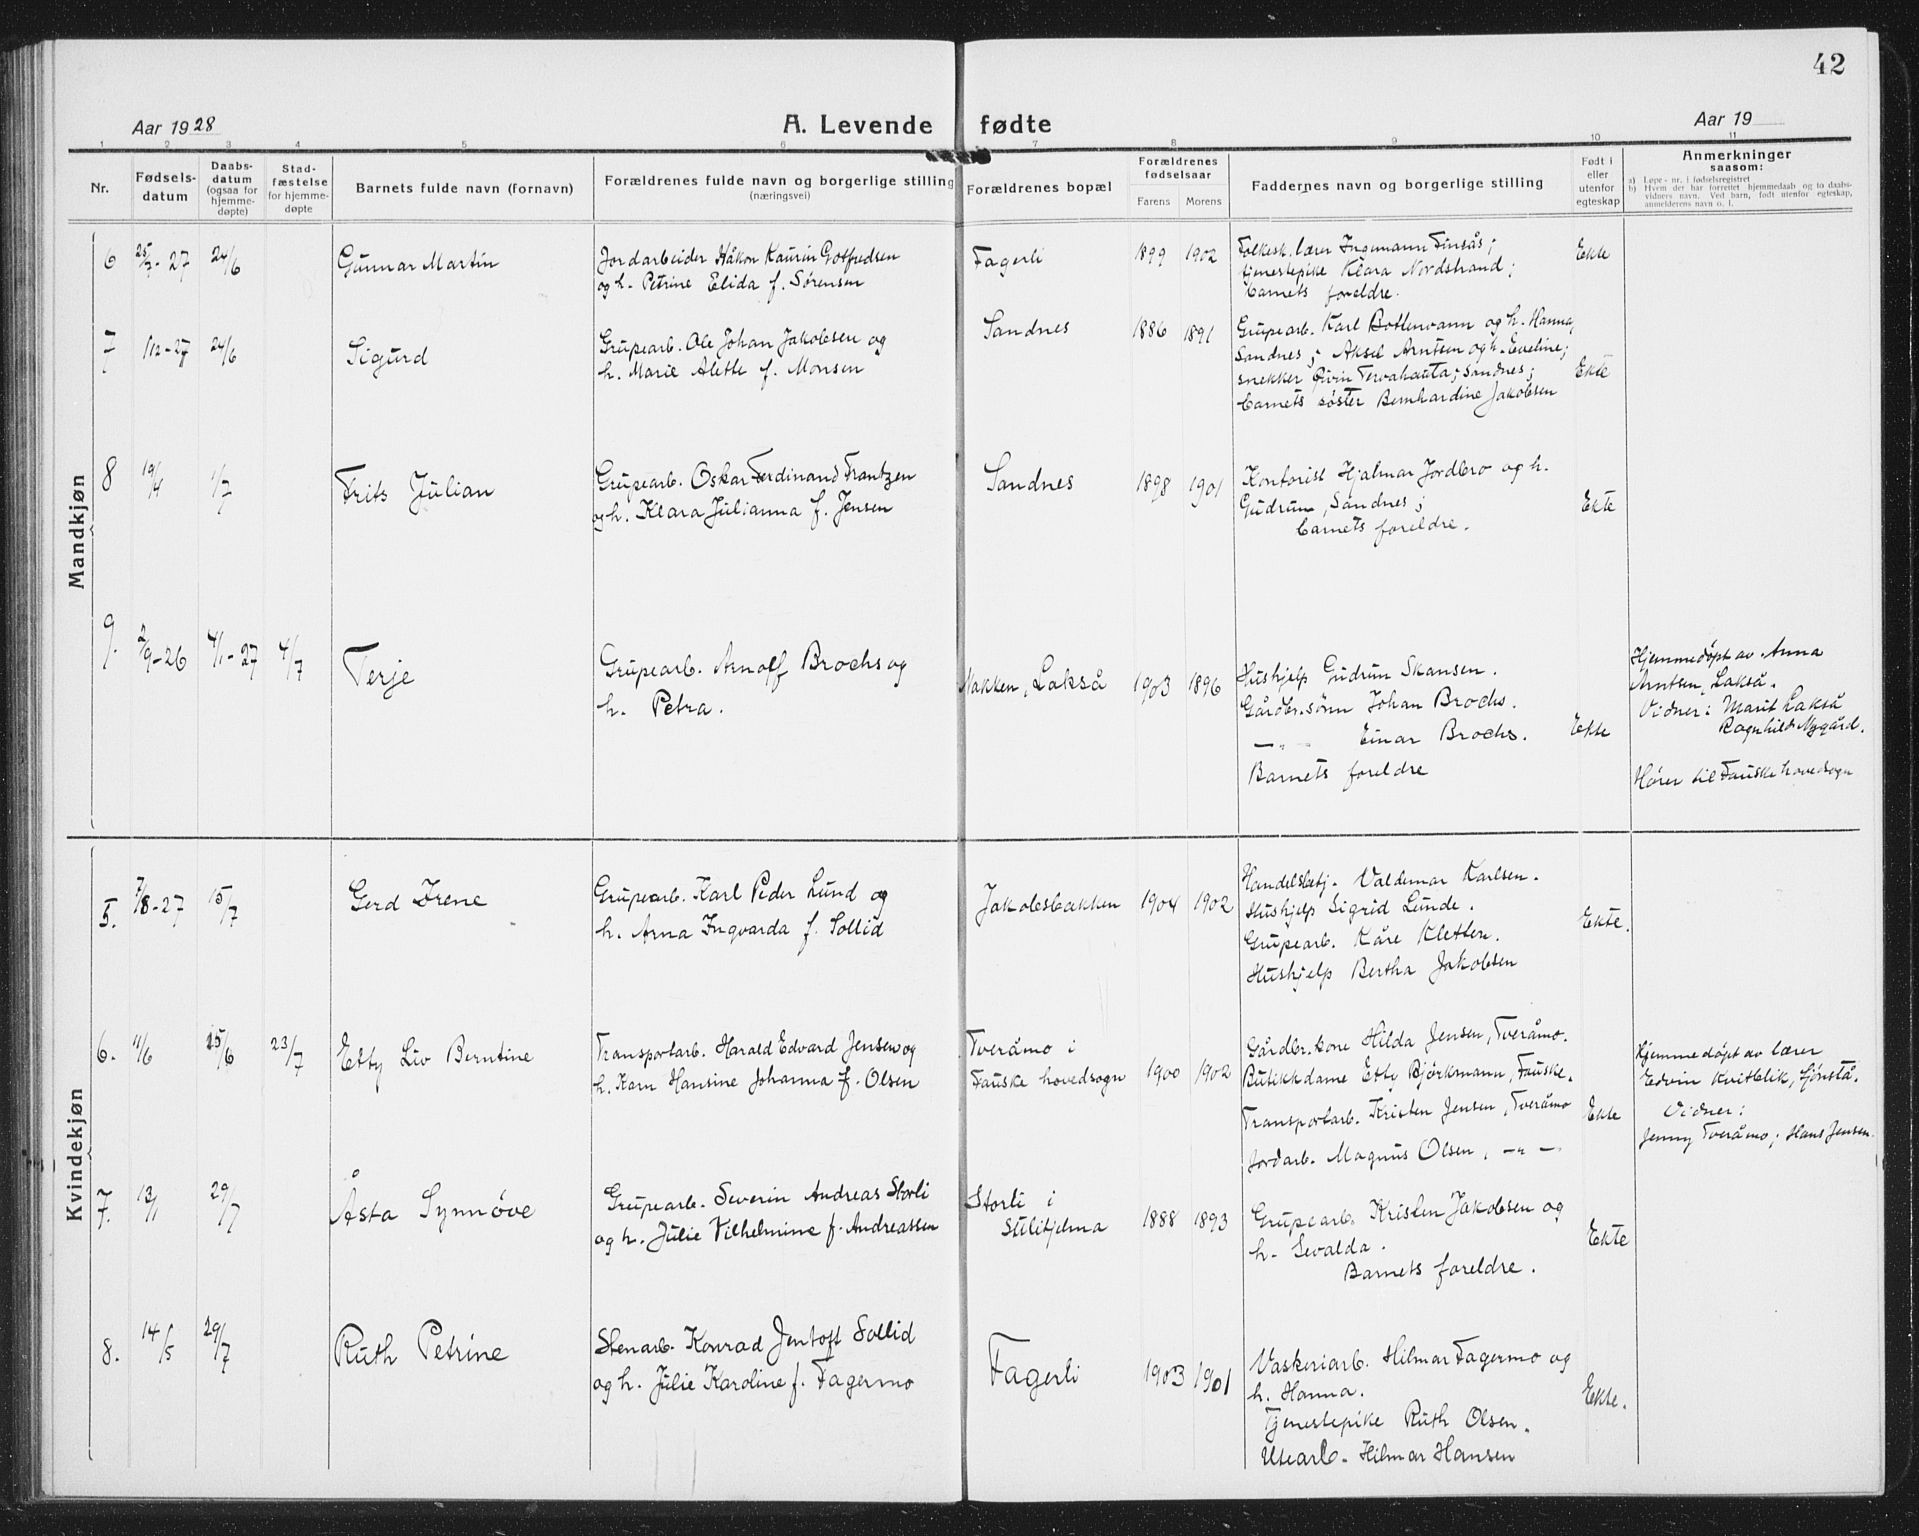 42
Aar 1928
A. Levende fødte
Aar 19
1 2 3 4 5 6 7 8 9 10 11
Nr.
Fødsels-
datum
Daabs-
datum
(ogsaa for
hjemme-
døpte)
Stad-
fæstelse
for hjemme-
døpte
Barnets fulde navn (fornavn)
Forældrenes fulde navn og borgerlige stilling
(næringsvei)
Forældrenes bopæl
Forældrenes
fødselsaar
Farens
Morens
Faddernes navn og borgerlige stilling
Født i
eller
utenfor
egteskap
Anmerkninger
saasom:
a) Løpe-nr. i fødselsregistret
b) Hvem der har forrettet hjemmedaab og to daabs-
vidners navn. Ved barn, født utenfor egteskap,
anmelderens navn o. l.
Mandkjøn
6 25/7-27 24/6
Gunnar Martin
Jordarbeider Håkon Kaurin Gotfredsen
og h. Petrine Elida f. Sørensen
Fagerli
1899 1902
Folkesk.lærer Ingemann Finsås;
tjenestepike Klara Nordstrand;
barnets foreldre.
Ekte
7 1/12-27 24/6
Sigurd
Grupearb. Ole Johan Jakobsen og
h. Marie Alette f. Monsen
Sandnes
1886 1891
Grupearb. Karl Bottenvann og h. Hanna,
Sandnes; Aksel Arntsen og h. Eveline;
snekker Eivin Tervahauta, Sandnes;
barnets søster Bernhardine Jakobsen
Ekte
8 19/4 1/7
Frits Julian
Grupearb. Oskar Ferdinand Frantzen
og h. Klara Julianna f. Jensen
Sandnes
1898 1901
Kontorist Hjalmar Jordbro og h.
Gudrun, Sandnes;
barnets foreldre.
Ekte
9. 2/9-26 4/1-27 4/7
Terje
Grupearb. Arnolf Brochs og
h. Petra.
Nakken, Lakså
1903 1896
Hushjelp Gudrun Skansen.
Gårdbr.sønn Johan Brochs.
— " — Einar Brochs.
Barnets foreldre
Ekte
Hjemmedøpt av Anna
Arntsen, Lakså.
Vidner: Marit Lakså
Ragnhild Nygård.
Hører til Fauske hovedsogn
Kvindekjøn
5. 7/8-27 15/7
Gerd Irene
Grupearb. Karl Peder Lund og
h. Arna Ingvarda f. Sollid
Jakobsbakken
1904 1902
Handelsbetj. Valdemar Karlsen.
Hushjelp Sigrid Lunde.
Grupearb. Kåre Kletten.
Hushjelp Bertha Jakobsen
Ekte.
6. 11/6 25/6 23/7
Etty Liv Berntine
Transportarb. Harald Edvard Jensen og
h. Karn Hansine Johanna f. Olsen
Tveråmo i
Fauske hovedsogn
1900 1902
Gårdbr.kone Hilda Jensen, Tveråmo.
Butikkdame Etty Bjørkmann, Fauske.
Transportarb. Kristen Jensen, Tveråmo
Jordarb. Magnus Olsen, — " —
Ekte
Hjemmedøpt av lærer
Edvin Kvitblik, Sjønstå.
Vidner:
Jenny Tveråmo; Hans Jensen.
7. 13/1 29/7
Åsta Synnøve
Grupearb. Severin Andreas Storli
og h. Julie Vilhelmine f. Andreassen
Storli i
Sulitjelma
1888 1893
Grupearb. Kristen Jakobsen og
h. Sevalda.
Barnets foreldre.
Ekte
8. 14/5 29/7
Ruth Petrine
Stenarb. Konrad Jentoft Sollid
og h. Julie Karoline f. Fagermo
Fagerli
1903 1901
Vaskeriarb. Hilmar Fagermo og
h. Hanna.
Tjenestepike Ruth Olsen.
Utearb. Hilmar Hansen
Ekte.